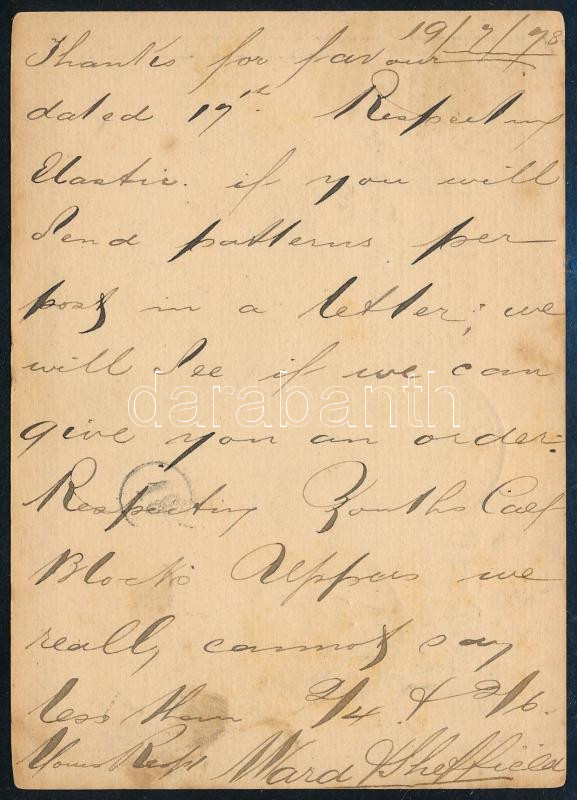 19/7/78
Thanks for favour
dated 17th. Respecting
Elastic. if you will
Send patterns per
post in a letter; we
will See if we can
give you an order.
darabanth
Respecting Youths Calf
Block Uppers we
really cannot say
less than 2/4. & 2/6.
Yours Resp. Ward Sheffield